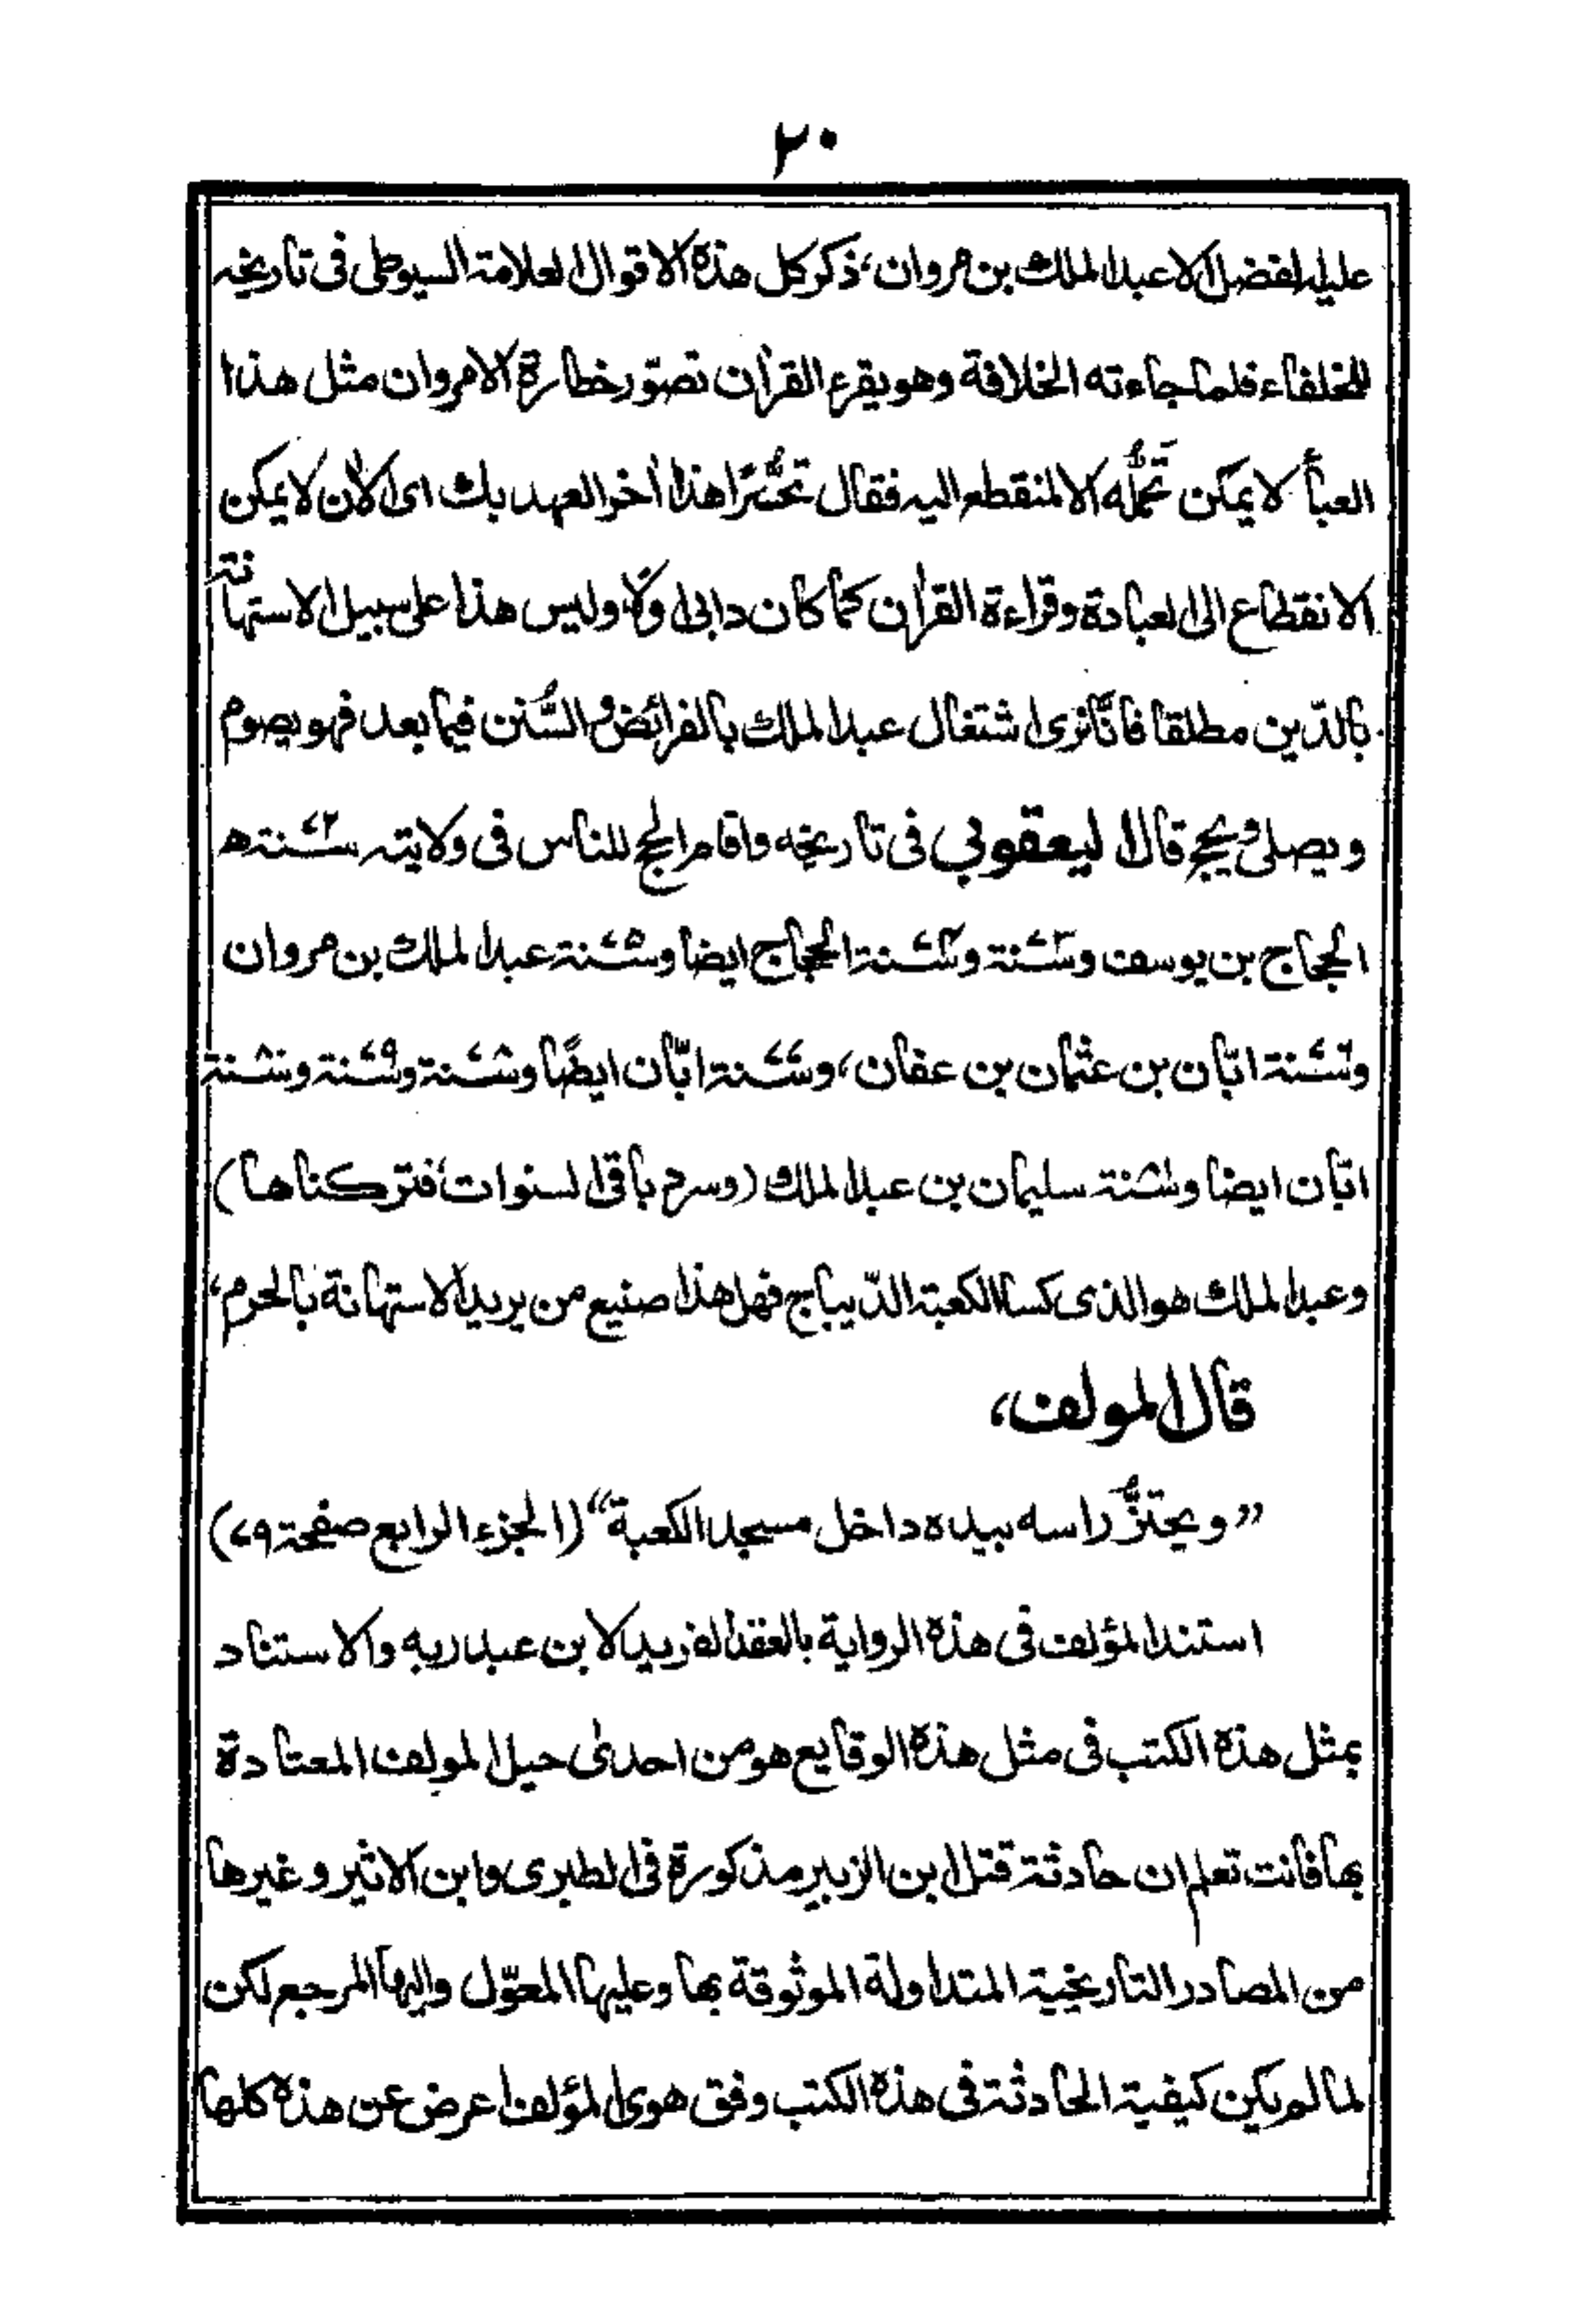 ٢٠
عليه الفضل الا عبد الملك بن مروان، ذكر كل هذه الاقوال العلامة السيوطى فى تاريخه
للخلفاء فلما جاءته الخلافة وهو يقرء القرآن تصوّر خطارة الامر وان مثل هذا
العبأ لا يمكن تحمّله الا لمنقطع اليه فقال تحسّرًا هذا اٰخر العهد بك اى الاٰن لا يمكن
الانقطاع الى العبادة وقراءة القراٰن كما كان دابى اولًا وليس هذا على سبيل الاستهانة
بالدّين مطلقا فانّا نرى اشتغال عبد الملك بالفرائض والسُّنن فيما بعد فهو يصوم
ويصلى ويحج قال اليعقوبي فى تاريخه واقام الحج للناس فى ولايته سنة ٧٢ھ
الحجاج بن يوسف وسنة ٧٣ وسنة ٧٤ الحجاج ايضا وسنة ٧٥ عبد الملك بن مروان
وسنة ٧٦ ابّان بن عثمان بن عفان، وسنة ٧٧ ابّان ايضًا وسنة ٧٨ وسنة ٧٩ وسنة ٨٠
ابّان ايضا وسنة ٨١ سليمان بن عبد الملك (وسرد باقى السنوات فتركناها)
وعبد الملك هو الذى كسا الكعبة الدّيباج فهل هذا صنيع من يريد الاستهانة بالحرم،
قال المولف،
”ويحتزُّ راسه بيده داخل مسجد الكعبة“ (الجزء الرابع صفحة ٧٩)
استند المؤلف فى هذه الرواية بالعقد الفريد لابن عبد ربه والاستناد
بمثل هذه الكتب فى مثل هذه الوقايع هو من احدى حيل المولف المعتادة
بها فانت تعلم ان حادثة قتل ابن الزبير مذكورة فى الطبرى وابن الاثير وغيرها
من المصادر التاريخية المتداولة الموثوقة بها وعليها المعوّل واليها المرجع لكن
لما لم يكن كيفية الحادثة فى هذه الكتب وفق هوى المؤلف اعرض عن هذه كلها